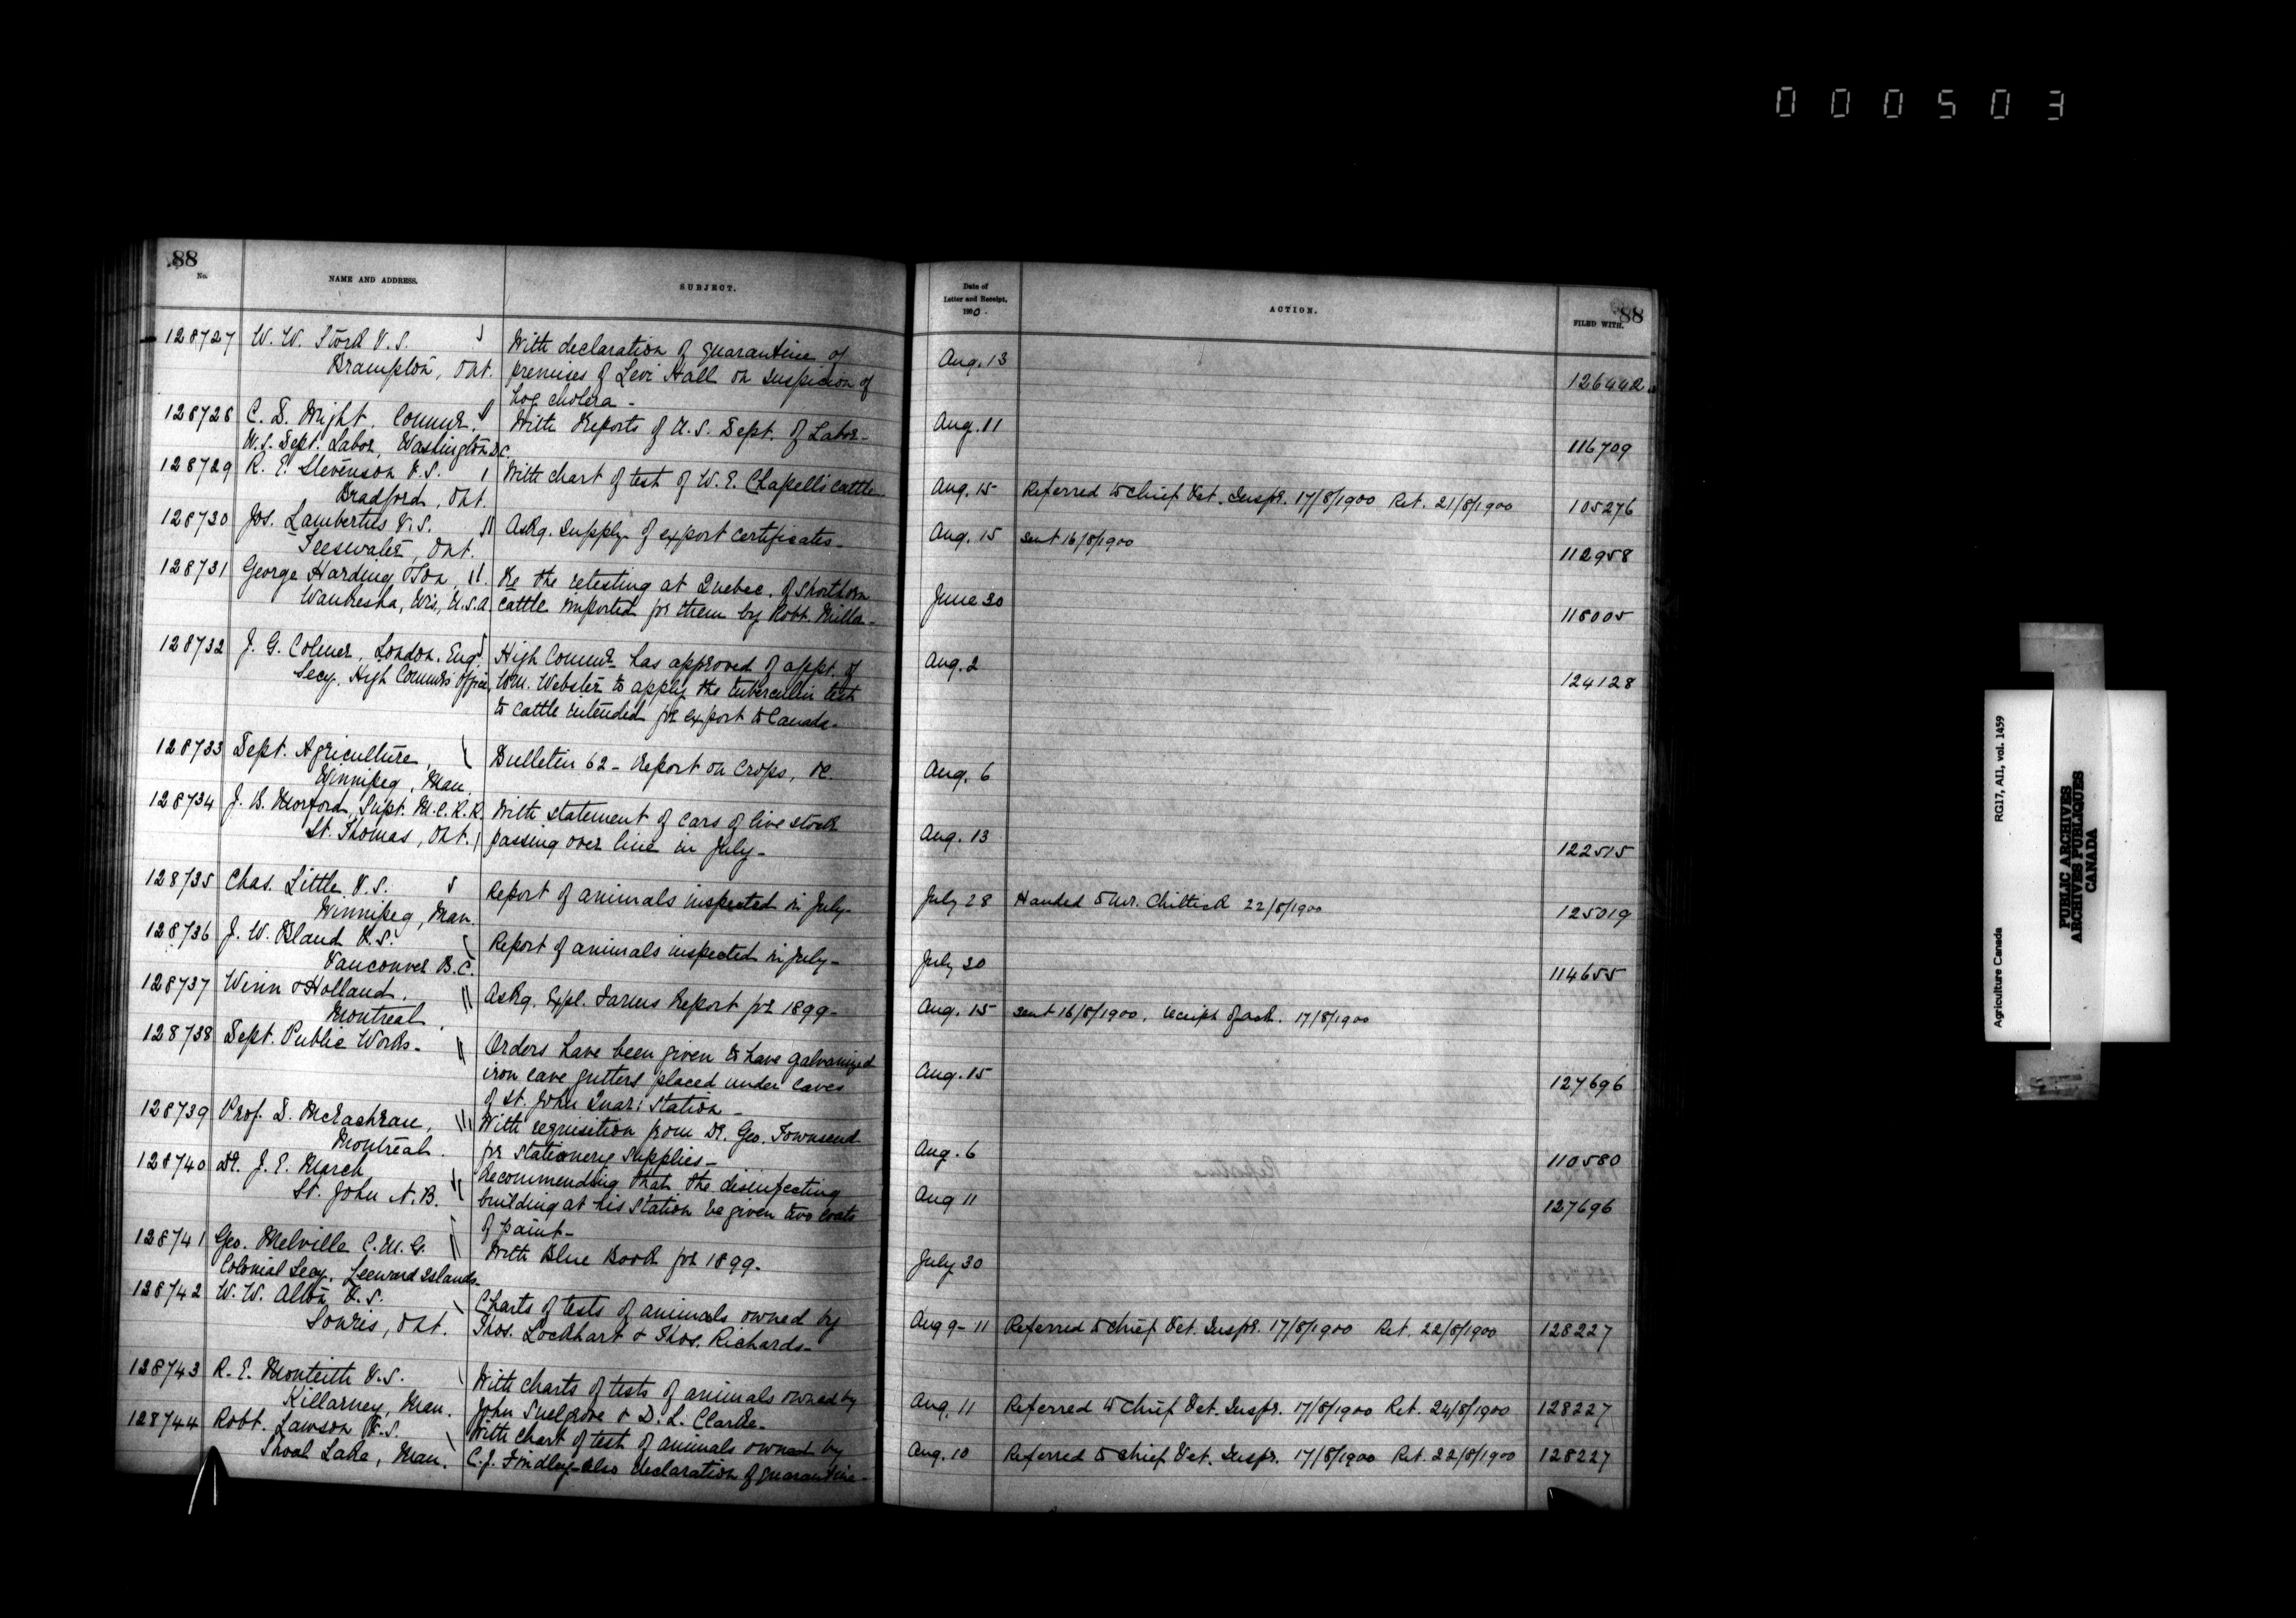 000503
88
No.
NAME AND ADDRESS.
SUBJECT.
128727 W. W. Stork V.S.
Brampton, Ont.
With declaration of quarantine of
premises of Levi Hall on suspicion of
hog cholera -
128728 C. D. Wright, Commr.
U.S. Dept. Labor, Washington D.C.
With Reports of U.S. Dept. of Labor -
128729 R. E. Stevenson V.S.
Bradford, Ont.
With chart of test of W. E. Chapell's cattle
128730 Jos. Lambertus V.S.
Teeswater, Ont.
Askg. supply of export certificates -
128731 George Harding & Son,
Waukesha, Wis, U.S.A.
Re the retesting at Quebec, of Shorthorn
cattle imported for them by Robt. Miller -
128732 J. G. Colmer, London, Eng.
Secy. High Commr's Office,
High Commr. has approved of appt. of
Wm. Webster to apply the tuberculin test
to cattle intended for export to Canada -
128733 Dept. Agriculture,
Winnipeg, Man.
Bulletin 62 - Report on Crops, &c.
128734 J. B. Morford, Supt. M.C.R.R.
St. Thomas, Ont.
With statement of cars of live stock
passing over line in July -
128735 Chas. Little V.S.
Winnipeg, Man.
Report of animals inspected in July -
128736 J. W. Bland V.S.
Vancouver B.C.
Report of animals inspected in July -
128737 Winn & Holland,
Montreal.
Askg. Expl. Farms Report for 1899 -
128738 Dept. Public Works -
Orders have been given to have galvanized
iron eave gutters placed under eaves
of St. John Quar: Station -
128739 Prof. D. McEachran,
Montreal.
With requisition from Dr. Geo. Townsend
for stationery supplies -
128740 Dr. J. E. March
St. John N.B.
Recommending that the disinfecting
building at his station be given two coats
of paint -
128741 Geo. Melville C.M.G.
Colonial Secy. Leeward Islands -
With Blue Book for 1899 -
128742 W. W. Alton V.S.
Souris, Ont.
Charts of tests of animals owned by
Thos. Lockhart & Thos. Richards -
128743 R. E. Monteith V.S.
Killarney, Man.
With charts of tests of animals owned by
John Snelgrove & D. L. Clarke -
128744 Robt. Lawson V.S.
Shoal Lake, Man.
With chart of test of animals owned by
C. J. Findlay - also declaration of quarantine -
Date of
Letter and Receipt.
1900.
ACTION.
FILED WITH.
88
Aug. 13 126442
Aug. 11 116709
Aug. 15 Referred to Chief Vet. Inspr. 17/8/1900 Ret. 21/8/1900 105276
Aug. 15 Sent 16/8/1900 112958
June 30 118005
Aug. 2 124128
Aug. 6
Aug. 13 122515
July 28 Handed to Mr. Chittick 22/8/1900 125019
July 30 114655
Aug. 15 Sent 16/8/1900, receipt of ack. 17/8/1900
Aug. 15 127696
Aug. 6 110580
Aug 11 127696
July 30
Aug 9 - 11 Referred to Chief Vet. Inspr. 17/8/1900 Ret. 22/8/1900 128227
Aug. 11 Referred to Chief Vet. Inspr. 17/8/1900 Ret. 24/8/1900 128227
Aug. 10 Referred to Chief Vet. Inspr. 17/8/1900 Ret. 22/8/1900 128227
Agriculture Canada
RG17, A11, vol. 1459
PUBLIC ARCHIVES
ARCHIVES PUBLIQUES
CANADA